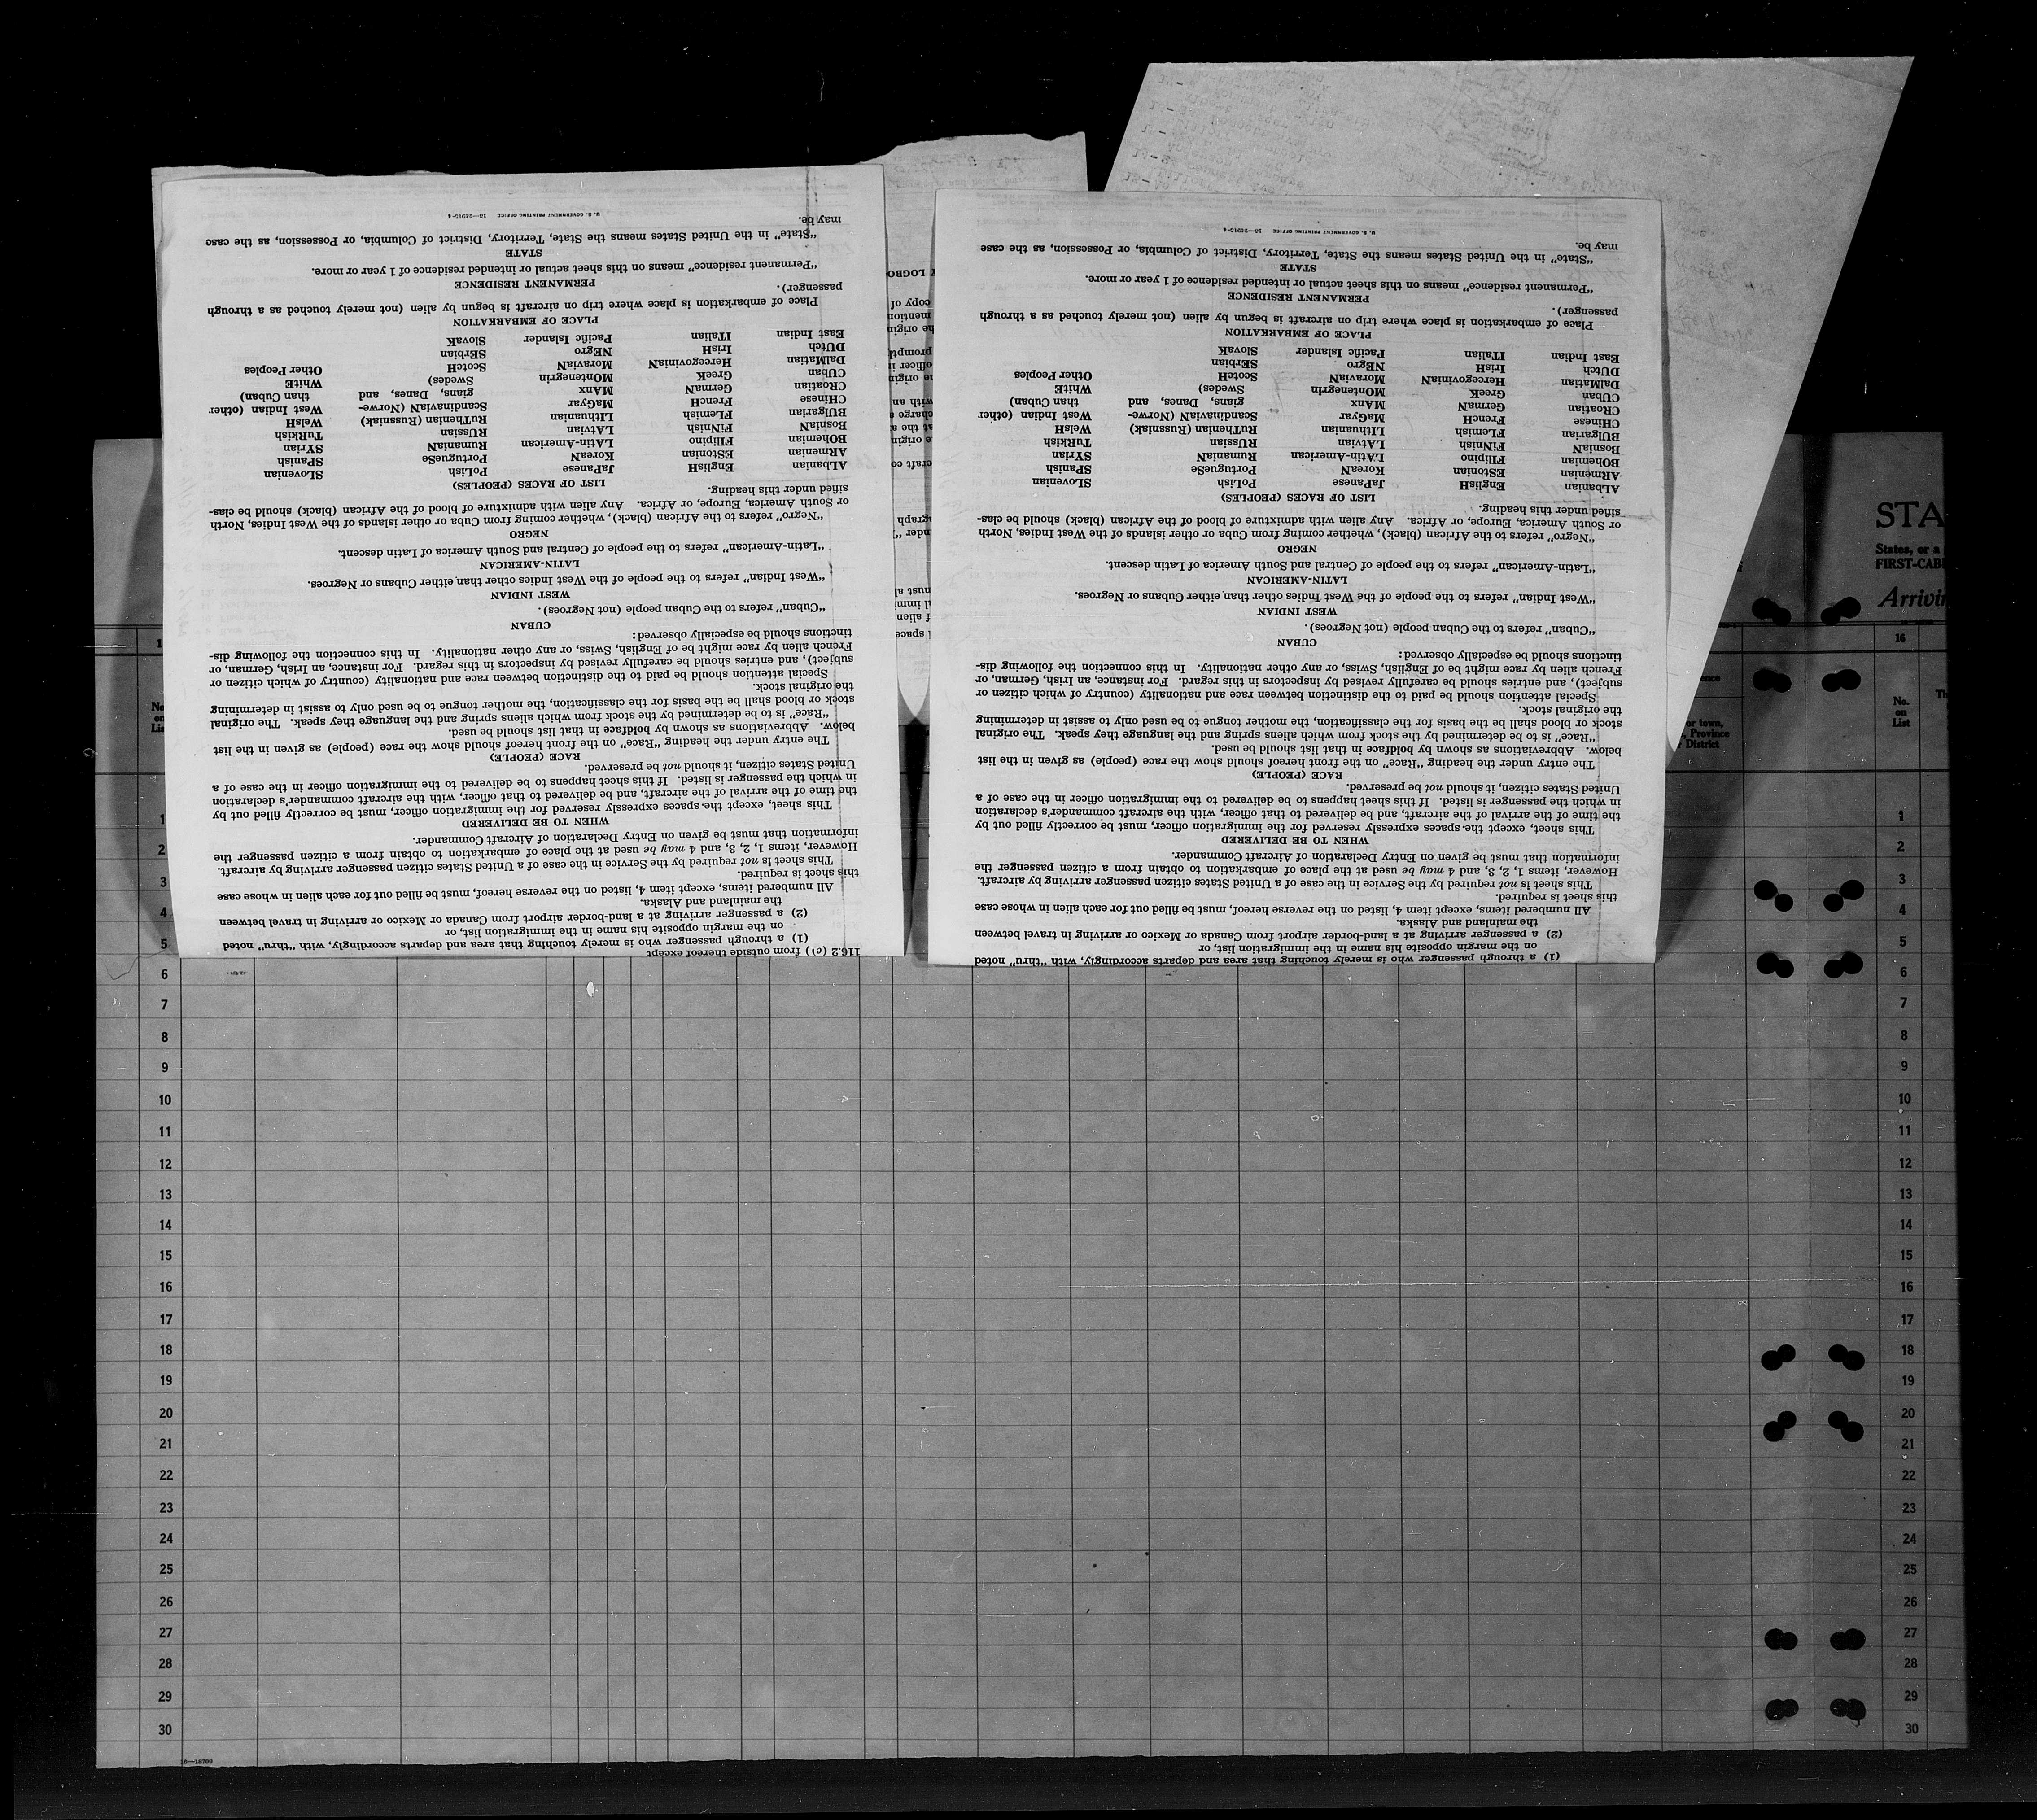 116.2 (c)) from outside thereof except
(1) a through passenger who is merely touching that area and departs accordingly, with "thru" noted
on the margin opposite his name in the immigration list, or
(2) a passenger arriving at a land-border airport from Canada or Mexico or arriving in travel between
the mainland and Alaska.
All numbered items, except item 4, listed on the reverse hereof, must be filled out for each alien in whose case
this sheet is required.
This sheet is not required by the Service in the case of a United States citizen passenger arriving by aircraft.
However, items 1, 2, 3, and 4 may be used at the place of embarkation to obtain from a citizen passenger the
information that must be given on Entry Declaration of Aircraft Commander.
WHEN TO BE DELIVERED
This sheet, except the spaces expressly reserved for the immigration officer, must be correctly filled out by
the time of the arrival of the aircraft, and be delivered to that officer, with the aircraft commander's declaration
in which the passenger is listed. If this sheet happens to be delivered to the immigration officer in the case of a
United States citizen, it should not be preserved.
RACE (PEOPLE)
The entry under the heading "Race" on the front hereof should show the race (people) as given in the list
below. Abbreviations as shown by boldface in that list should be used.
"Race" is to be determined by the stock from which aliens spring and the language they speak. The original
stock or blood shall be the basis for the classification, the mother tongue to be used only to assist in determining
the original stock.
Special attention should be paid to the distinction between race and nationality (country of which citizen or
subject), and entries should be carefully revised by inspectors in this regard. For instance, an Irish, German, or
French alien by race might be of English, Swiss, or any other nationality. In this connection the following dis-
tinctions should be especially observed:
CUBAN
"Cuban" refers to the Cuban people (not Negroes).
WEST INDIAN
"West Indian" refers to the people of the West Indies other than either Cubans or Negroes.
LATIN-AMERICAN
"Latin-American" refers to the people of Central and South America of Latin descent.
NEGRO
"Negro" refers to the African (black), whether coming from Cuba or other islands of the West Indies, North
or South America, Europe, or Africa. Any alien with admixture of blood of the African (black) should be clas-
sified under this heading.
LIST OF RACES (PEOPLES)
ALbanian EnglisH JaPanese PoLish SLOvenian
ARmenian EStonian KoreaN PortugueSe SPanish
BOhemian FIlipino LAtin-American RumaniaN SYrian
BosniaN FiNnish LAtvian RUssian TuRkish
BUlgarian FLemish LIthuanian RuThenian (Russniak) WelsH
CHinese FrencH MaGyar Scandinavian (Norwe- West Indian (other
CRoatian GermaN MAnx gians, Danes, and than Cuban)
CUban GreeK MOntenegrin Swedes) WhitE
DalMatian HercegovinaN MoraviaN ScotcH Other Peoples
DUtch IrisH NEgro SErbian
East Indian ITalian Pacific Islander SlovaK
PLACE OF EMBARKATION
Place of embarkation is place where trip on aircraft is begun by alien (not merely touched as a through
passenger).
PERMANENT RESIDENCE
"Permanent residence" means on this sheet actual or intended residence of 1 year or more.
STATE
"State" in the United States means the State, Territory, District of Columbia, or Possession, as the case
may be.
U. S. GOVERNMENT PRINTING OFFICE 16—24915-4
(1) a through passenger who is merely touching that area and departs accordingly, with "thru" noted
on the margin opposite his name in the immigration list, or
(2) a passenger arriving at a land-border airport from Canada or Mexico or arriving in travel between
the mainland and Alaska.
All numbered items, except item 4, listed on the reverse hereof, must be filled out for each alien in whose case
this sheet is required.
This sheet is not required by the Service in the case of a United States citizen passenger arriving by aircraft.
However, items 1, 2, 3, and 4 may be used at the place of embarkation to obtain from a citizen passenger the
information that must be given on Entry Declaration of Aircraft Commander.
WHEN TO BE DELIVERED
This sheet, except the spaces expressly reserved for the immigration officer, must be correctly filled out by
the time of the arrival of the aircraft, and be delivered to that officer, with the aircraft commander's declaration
in which the passenger is listed. If this sheet happens to be delivered to the immigration officer in the case of a
United States citizen, it should not be preserved.
RACE (PEOPLE)
The entry under the heading "Race" on the front hereof should show the race (people) as given in the list
below. Abbreviations as shown by boldface in that list should be used.
"Race" is to be determined by the stock from which aliens spring and the language they speak. The original
stock or blood shall be the basis for the classification, the mother tongue to be used only to assist in determining
the original stock.
Special attention should be paid to the distinction between race and nationality (country of which citizen or
subject), and entries should be carefully revised by inspectors in this regard. For instance, an Irish, German, or
French alien by race might be of English, Swiss, or any other nationality. In this connection the following dis-
tinctions should be especially observed:
CUBAN
"Cuban" refers to the Cuban people (not Negroes).
WEST INDIAN
"West Indian" refers to the people of the West Indies other than either Cubans or Negroes.
LATIN-AMERICAN
"Latin-American" refers to the people of Central and South America of Latin descent.
NEGRO
"Negro" refers to the African (black), whether coming from Cuba or other islands of the West Indies, North
or South America, Europe, or Africa. Any alien with admixture of blood of the African (black) should be clas-
sified under this heading.
LIST OF RACES (PEOPLES)
ALbanian EnglisH JaPanese PoLish SLOvenian
ARmenian EStonian KoreaN PortugueSe SPanish
BOhemian FIlipino LAtin-American RumaniaN SYrian
BosniaN FiNnish LAtvian RUssian TuRkish
BUlgarian FLemish LIthuanian RuThenian (Russniak) WelsH
CHinese FrencH MaGyar Scandinavian (Norwe- West Indian (other
CRoatian GermaN MAnx gians, Danes, and than Cuban)
CUban GreeK MOntenegrin Swedes) WhitE
DalMatian HercegovinaN MoraviaN ScotcH Other Peoples
DUtch IrisH NEgro SErbian
East Indian ITalian Pacific Islander SlovaK
PLACE OF EMBARKATION
Place of embarkation is place where trip on aircraft is begun by alien (not merely touched as a through
passenger).
PERMANENT RESIDENCE
"Permanent residence" means on this sheet actual or intended residence of 1 year or more.
STATE
"State" in the United States means the State, Territory, District of Columbia, or Possession, as the case
may be.
U. S. GOVERNMENT PRINTING OFFICE 16—24915-4
STA
States, or a
FIRST-CAB
Arrivin
16
No.
on
List
or town,
Province
District
1
2
3
4
5
6
7
8
9
10
11
12
13
14
15
16
17
18
19
20
21
22
23
24
25
26
27
28
29
30
16—18709
1
2
3
4
5
6
7
8
9
10
11
12
13
14
15
16
17
18
19
20
21
22
23
24
25
26
27
28
29
30